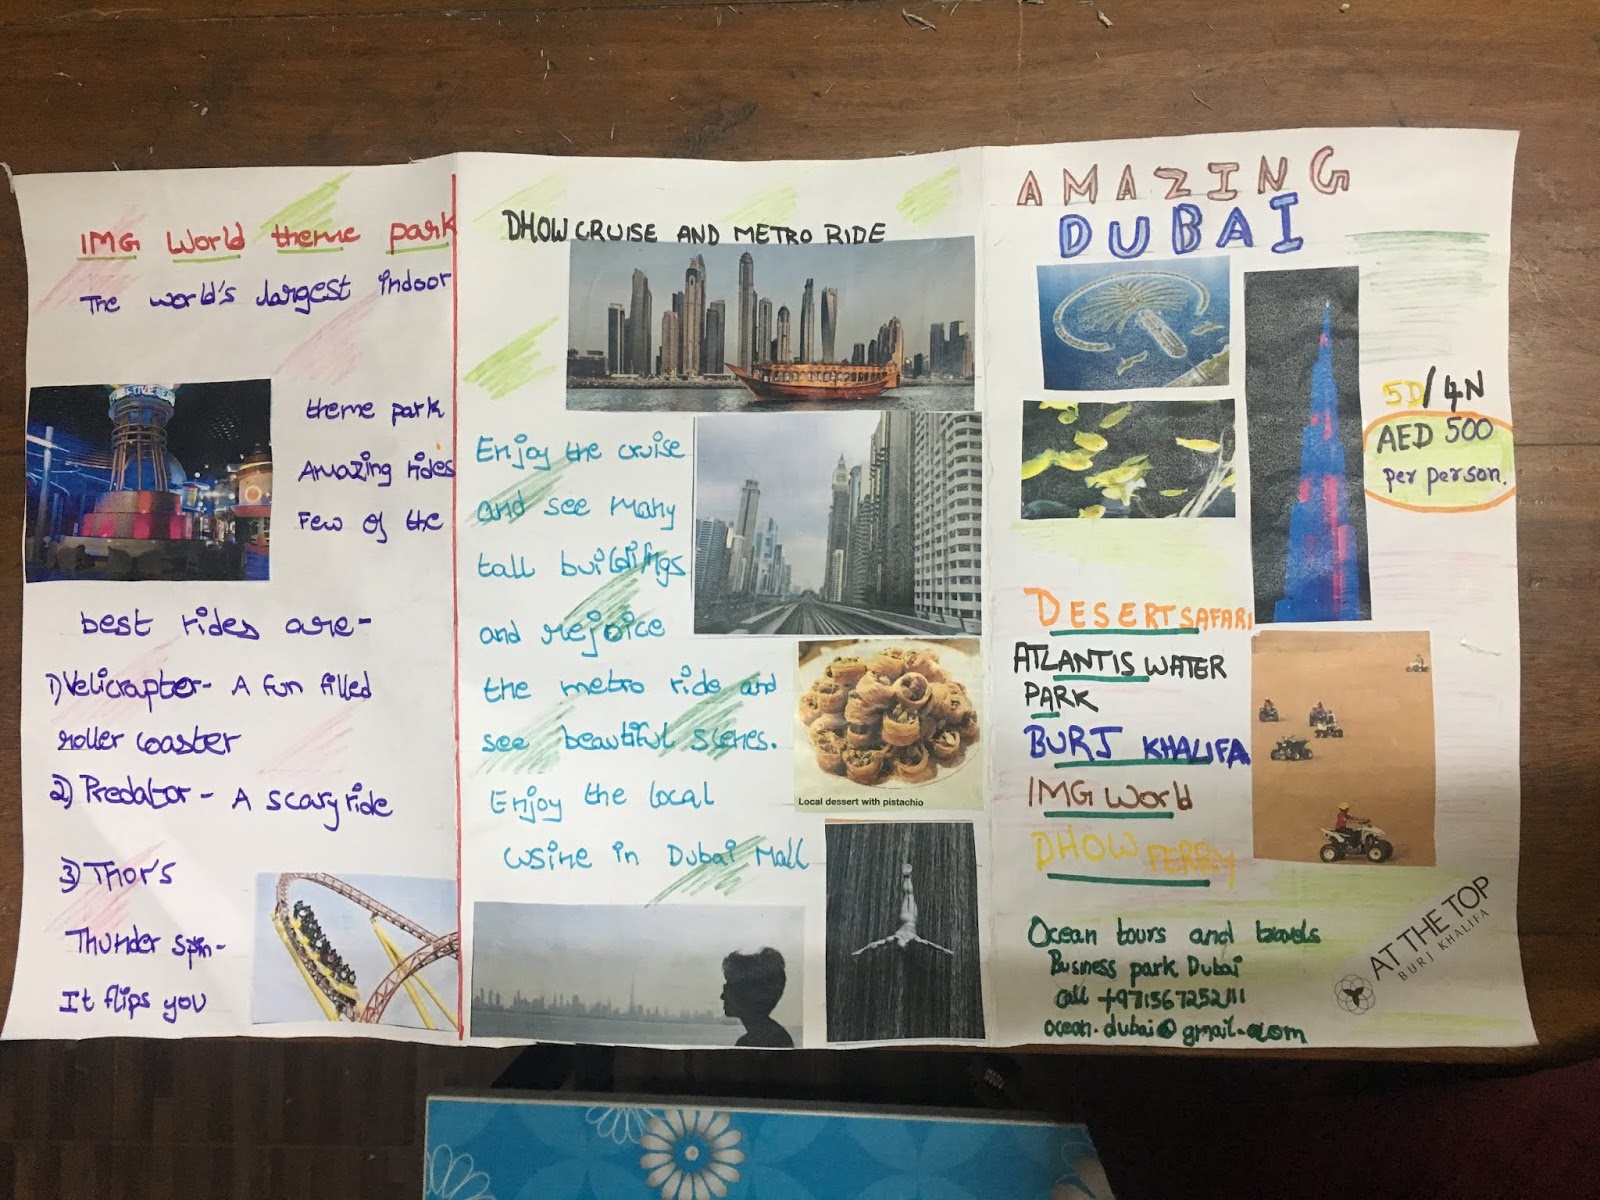 IMG World theme park
The world's largest indoor
theme park
Amazing rides
Few of the
best rides are-
1) Velicrapter- A fun filled
roller coaster
2) Predator - A scary ride
3) Thor's
Thunder spin-
It flips you
DHOW CRUISE AND METRO RIDE
Enjoy the cruise
and see many
tall buildings
and rejoice
the metro ride and
see beautiful scenes.
Local dessert with pistachio
Enjoy the local
cusine in Dubai Mall
AMAZING
DUBAI
5D/4N
AED 500
per person.
DESERT SAFARI
ATLANTIS WATER
PARK
BURJ KHALIFA
IMG World
DHOW FERRY
Ocean tours and travels
Business park Dubai
call +971567252111
ocean.dubai@gmail.com
AT THE TOP
BURJ KHALIFA